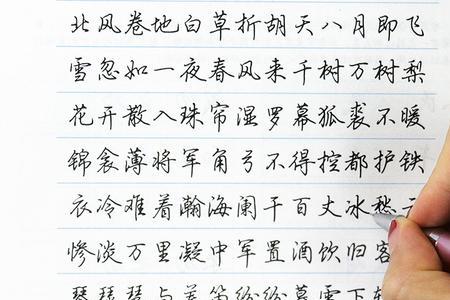 北风卷地白草折胡天八月即飞
雪忽如一夜春风来千树万树梨
花开散入珠帘湿罗幕狐裘不暖
锦衾薄将军角弓不得控都护铁
衣冷难着瀚海阑干百丈冰愁云
惨淡万里凝中军置酒饮归客
琵琶与羌笛纷纷暮雪下辕